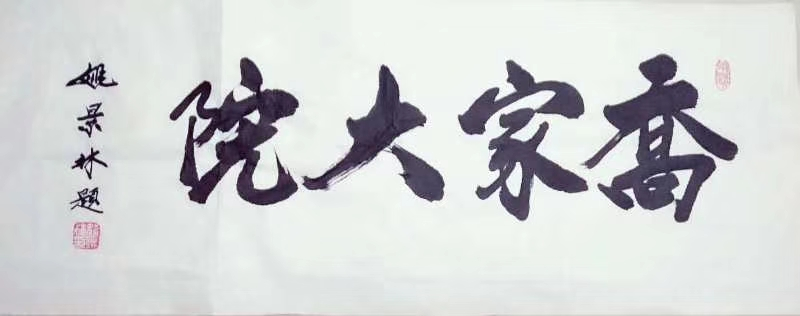 喬家大院
姚景林題